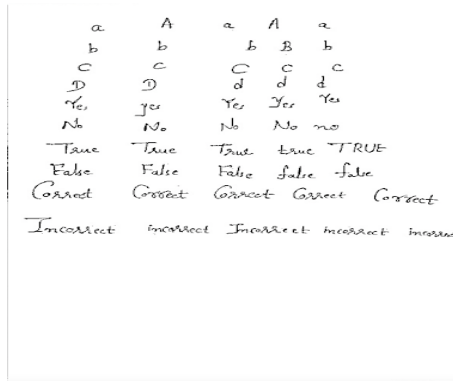 a A a A a
b b b B b
C c C c c
D D d d d
Yes yes Yes Yes Yes
No No No No no
True True True true TRUE
False False False false false
Correct Correct Correct Correct Correct
Incorrect incorrect Incorrect incorrect